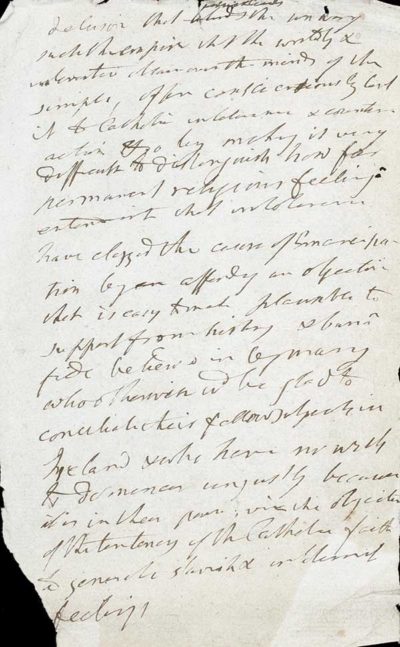 delusion that binds the unwary
such the empire that the worldly &
over the minds of the
simple, often conscientiously lead
it to Catholic intolerance & counter
action also by making it very
difficult to distinguish how far
permanent religious feelings
extenuate that intolerance
have clogged the cause of Emancipa
tion by affording an objection
that is easy to make plausible to
support from history & bona
fide believed in by many
who otherwise wd be glad to
conciliate their fellow subjects in
Ireland & who have no wish
to domineer unjustly because
it is in their power; viz the objection
of the tendency of the Catholic faith
to generate slavish & intolerant
feelings